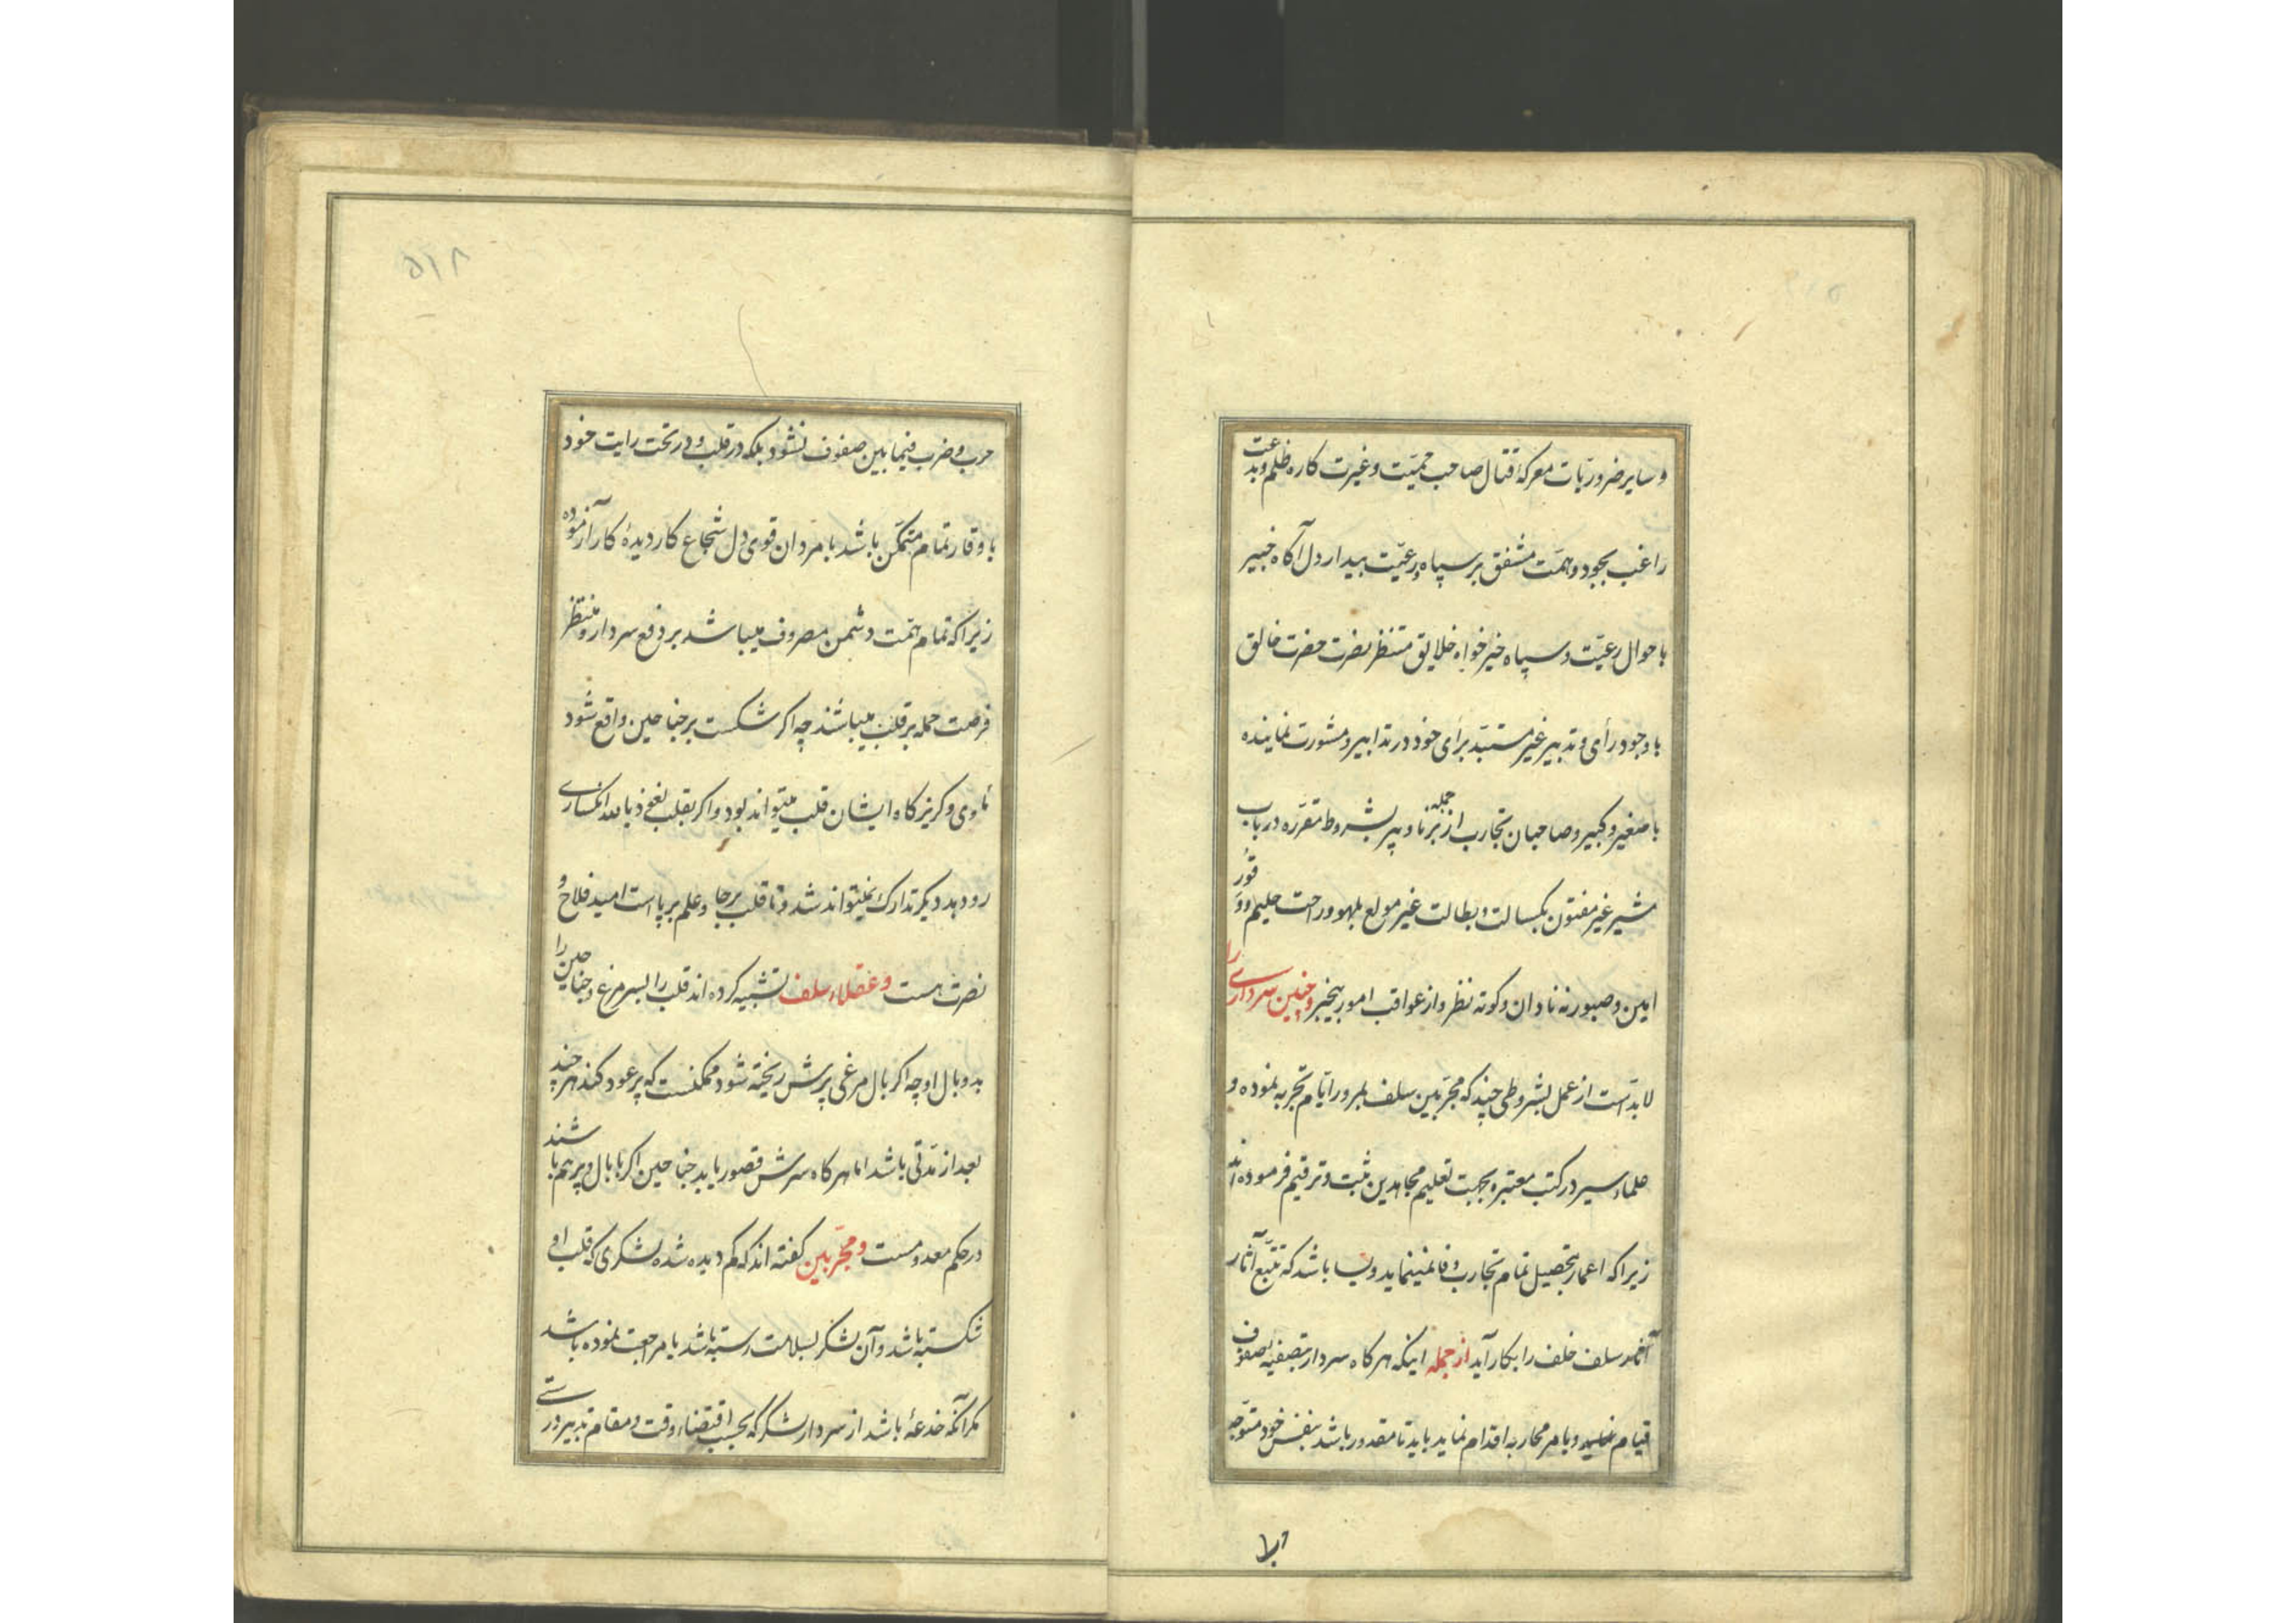 و سایر ضروریّات معرکهٔ قتال صاحب حمیّت و غیرت کاره ظلم و بدعت
راغب بجود و همّت مشفق بر سپاه و رعیّت بیدار دل آگاه خبیر
باحوال رعیّت و سپاه خیرخواه خلایق منتظر نصرت حضرت خالق
با وجود رأی و تدبیر غیر مستبدّ برأی خود در تدابیر و مشورت نماینده
با صغیر و کبیر و صاحبان تجارب از جمله برنا و پیر بشروط مقرّره در باب
مشیر غیر مفتون بکسالت و بطالت غیر مولع بلهو و راحت حلیم و وقور
امین و صبور نه نادان و کوته نظر و از عواقب امور بیخبر و چنین سرداری را
لابدّ است از عمل بشروطی چند که مجرّبین سلف بمرور ایّام تجربه نموده و
علماء سیر در کتب معتبره بجهت تعلیم مجاهدین ثبت و ترقیم فرموده اند
زیرا که اعمار بتحصیل تمام تجارب وفا نمینماید و بسا باشد که تتبّع آثار
سلف خلف را بکار آید از جمله اینکه هرگاه سردار بتصفیهٔ صفوف
قیام نماید و بامر محاربه اقدام نماید باید تا مقدور باشد بنفس خود متوجّه
۵۱۸
حرب و ضرب فیما بین صفوف نشود بلکه در قلب و در تحت رایت خود
با وقار تمام متمکّن باشد با مردان قوی دل شجاع کار دیدهٔ کار آزموده
زیرا که تمام همّت دشمن مصروف میباشد بر دفع سردار و منتظر
فرصت حمله بر قلب میباشند چه اگر شکست بر جناحین واقع شود
مأوی و گریزگاه ایشان قلب میتواند بود و اگر بقلب نعوذ بالله انکساری
رو دهد دیگر تدارک نمیتواند شد و تا قلب برجا و علم برپاست امید فلاح و
نصرت هست و عقلاء سلف تشبیه کرده اند قلب را بسر مرغ و جناحین را
بدو بال او چه اگر بال مرغی پرش ریخته شود ممکنست که پر عود کند هر چند
بعد از مدّتی باشد اما هرگاه سرش قصور یابد جناحین اگر با بال و پر هم باشند
در حکم معدومست و مجرّبین گفته اند که کم دیده شده لشکری که قلب او
شکسته باشد و آن لشکر بسلامت رسته باشد یا مراجعت نموده باشد
مگر آنکه خدعهٔ باشد از سردار لشکر که بحسب اقتضاء وقت و مقام تدبیر درستی